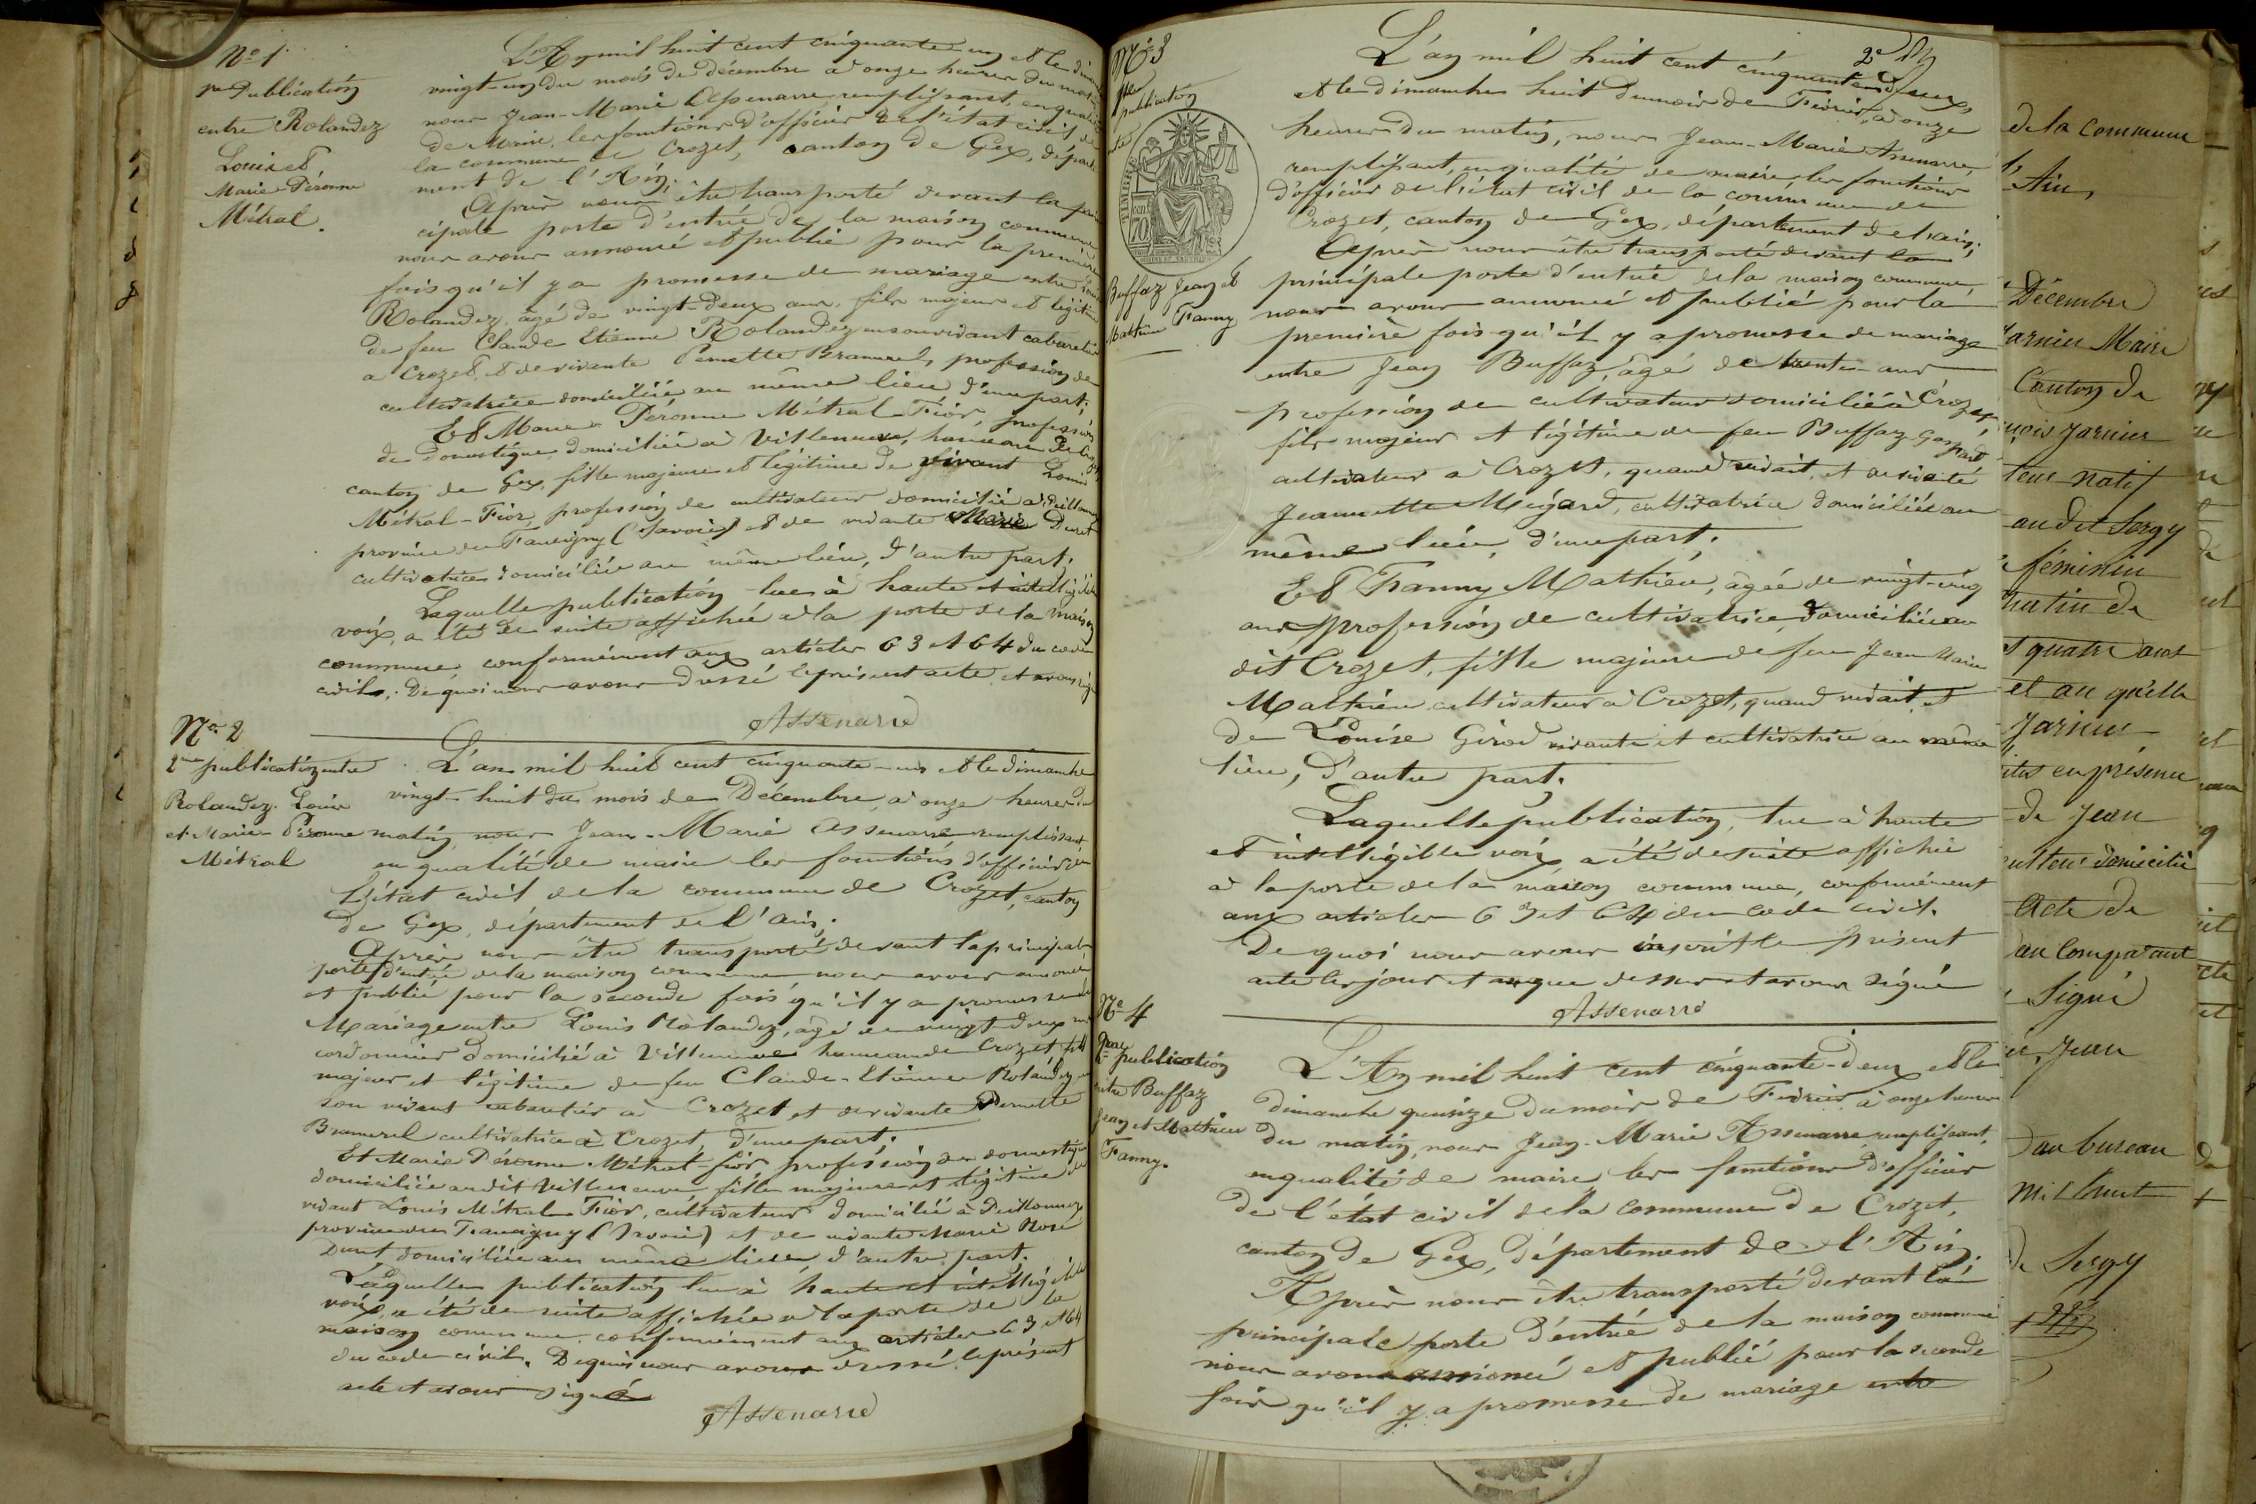 No 1
1re Publication
entre Rolandez
Louis et
Marie Péronne
Métral.
L'An mil huit cent cinquante-un et le
vingt-un du mois de décembre à onze heures du
nous Jean-Marie Assenarre remplissant, en qualité
de Maire, les fonctions d'officier de l'état civil de
la commune de Crozet, canton de Gex, départe
ment de l'Ain;
Après nous être transporté devant la prin
cipale porte d'entrée de la maison commune
nous avons annoncé et publié pour la première
fois qu'il y a promesse de mariage entre Louis
Rolandez, âgé de vingt-deux ans, fils majeur et légitime
de feu Claude Etienne Rolandez en son vivant cabaretier
à Crozet, et de vivante Pernette Bramerel, profession de
cultivatrice domiciliée au même lieu d'une part;
Et Marie Péronne Métral-Fior, profession
de domestique domiciliée à Villeneuve, hameau de
canton de Gex, fille majeure et légitime de vivant Louis
Métral-Fior, profession de cultivateur domicilié à
province du Faucigny (Savoie) et de vivante Marie Duret
cultivatrice domiciliée au même lieu, d'autre part.
Laquelle publication lue à haute et intelligible
voix, a été de suite affichée à la porte de la maison
commune, conformément aux articles 63 et 64 du code
civil. De quoi nous avons dressé le présent acte et avons signé
Assenarre
No 2
2me publication entre
Rolandez Louis
et Marie Péronne
Métral
L'an mil huit cent cinquante-un et le dimanche
vingt-huit du mois de Décembre, à onze heures du
matin, nous Jean-Marie Assenarre, remplissant,
en qualité de maire les fonctions d'officier de
l'état civil de la commune de Crozet, canton
de Gex, département de l'Ain;
Après nous être transporté devant la principale
porte d'entrée de la maison commune nous avons annoncé
et publié pour la seconde fois qu'il y a promesse de
Mariage entre Louis Rolandez, âgé de vingt-deux ans
cordonnier domicilié à Villeneuve hameau de Crozet fils
majeur et légitime de feu Claude-Etienne Rolandez en
son vivant cabaretier à Crozet, et de vivante Pernette
Bramerel cultivatrice à Crozet, d'une part;
Et Marie Péronne Métral-Fior, profession de domestique
domiciliée au dit Villeneuve fille majeure et légitime de
vivant Louis Métral-Fior, cultivateur domicilié à
province du Faucigny (Savoie) et de vivante Marie Rose
Duret domiciliée au même lieu, d'autre part.
Laquelle publication lue à haute et intelligible
voix, a été de suite affichée à la porte de la
maison commune conformément aux articles 63 et 64
du code civil. De quoi nous avons dressé le présent
acte et avons signé
Assenarre
No 3
1re
publication
TIMBRE
70
Buffaz Jean et
Mathieu Fanny
L'an mil huit cent cinquante-deux,
et le dimanche huit du mois de Février, à onze
heures du matin, nous Jean-Marie Assenarre,
remplissant, en qualité de maire les fonctions
d'officier de l'état civil de la commune de
Crozet, canton de Gex, département de l'ain;
Après nous être transporté devant la
principale porte d'entrée de la maison commune,
nous avons annoncé et publié pour la
première fois qu'il y a promesse de mariage
entre Jean Buffaz, âgé de trente ans
profession de cultivateur domicilié à Crozet,
fils majeur et légitime de feu Buffaz Gaspard
cultivateur à Crozet, quand vivait, et de vivante
Jeannette Mégard, cultivatrice domiciliée au
même lieu, d'une part;
Et Fanny Mathieu, âgée de vingt-cinq
ans profession de cultivatrice, domiciliée au
dit Crozet, fille majeure de feu Jean Marie
Mathieu cultivateur à Crozet, quand vivait, et
de Louise Girod vivante et cultivatrice au même
lieu, d'autre part.
Laquelle publication, lue à haute
et intelligible voix, a été de suite affichée
à la porte de la maison commune, conformément
aux articles 63 et 64 du code civil.
De quoi nous avons inscrit le présent
acte les jour et an que dessus et avons signé
Assenarre
No 4
publication
entre Buffaz
Jean et Mathieu
Fanny.
L'An mil huit cent cinquante-deux et le
dimanche quinze du mois de Février à onze heures
du matin, nous Jean-Marie Assenarre remplissant,
en qualité de maire les fonctions d'officier
de l'état civil de la commune de Crozet,
canton de Gex, département de l'Ain;
Après nous être transporté devant la
principale porte d'entrée de la maison commune
nous avons annoncé et publié pour la seconde
fois qu'il y a promesse de mariage entre
de la commune
l'Ain,
Décembre
Jarnier Maire
Canton de
Jarnier
natif
au dit Sergy
féminin
matin de
quatre ans
et au qu'elle
Jarnier
en présence
de Jean
domicilié
Acte de
au comparant
Signé
Jean
au bureau
Mil huit
de Sergy